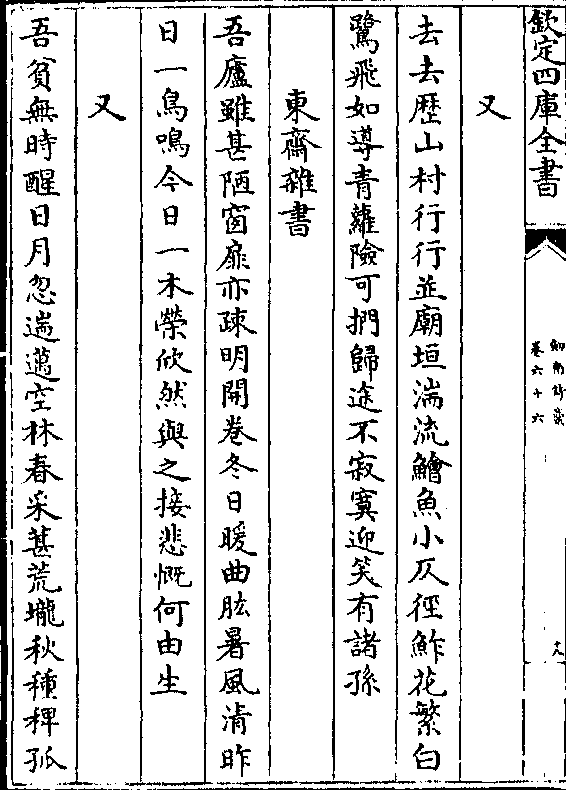 欽定四庫全書
劍南詩稾
卷六十六
十八
又
去去歴山村行行並廟垣湍流鱠魚小仄徑鮓花繁白
鷺飛如導青蘿險可捫歸途不寂寞迎笑有諸孫
東齋雜書
吾廬雖甚陋窗扉亦疎明開卷冬日暖曲肱暑風清昨
日一鳥鳴今日一木榮欣然與之接悲慨何由生
又
吾貧無時醒日月忽遄邁空林春采葚荒壠秋種稗孤